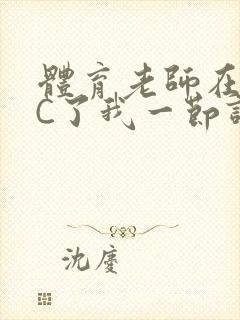 體育老師在
C了我一節
沈慶